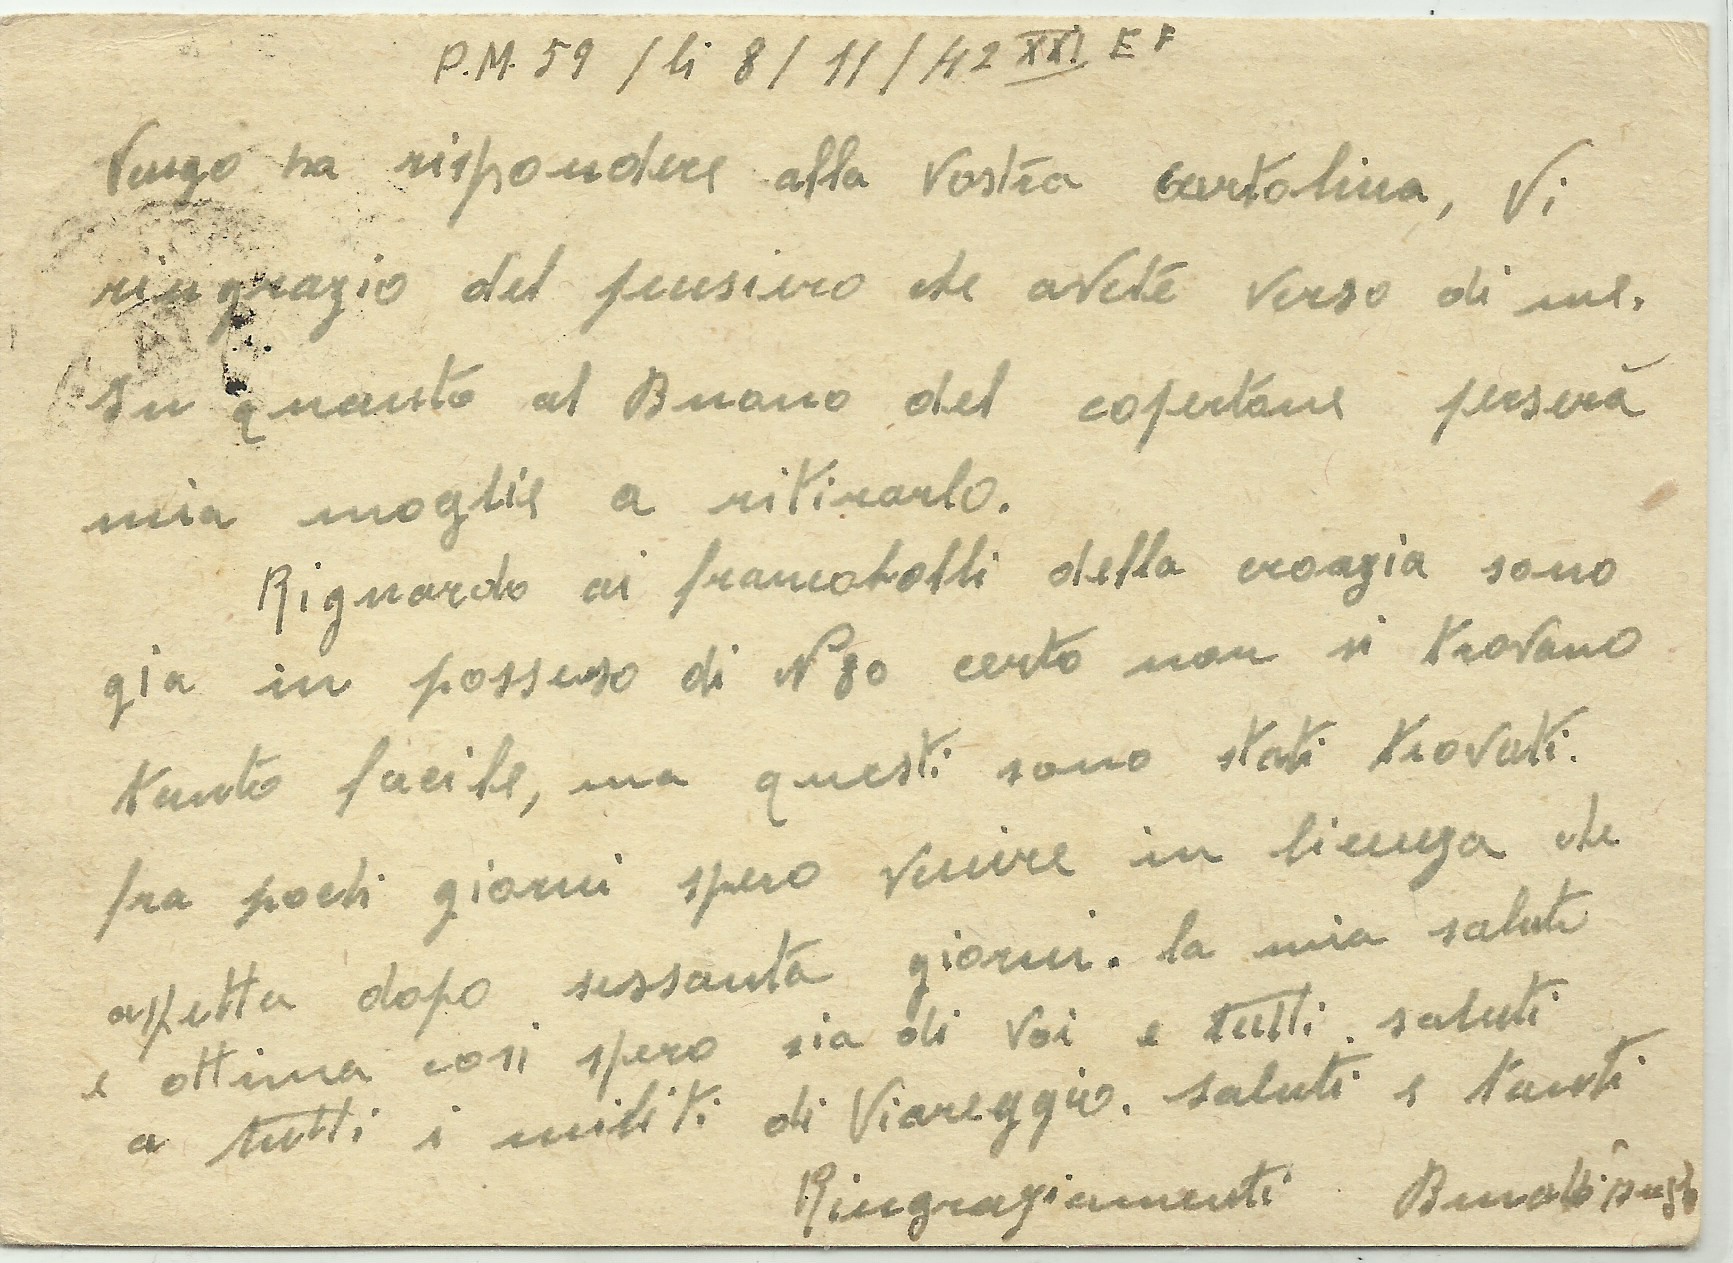 P.M. 59 / li 8 / 11 / 42 XXI E F
Vengo ha rispondere alla Vostra cartolina, Vi
ringrazio del pensiero che avete verso di me.
In quanto al Buono del copertone penserà
mia moglie a ritirarlo.
Riguardo ai francobolli della croazia sono
gia in possesso di N° 80 certo non si trovano
tanto facile, ma questi sono stati trovati.
fra pochi giorni spero venire in licenza che
aspetta dopo sessanta giorni. la mia salute
e ottima cosi spero sia di voi e tutti. saluti
a tutti i militi di Viareggio. saluti e tanti
Ringraziamenti